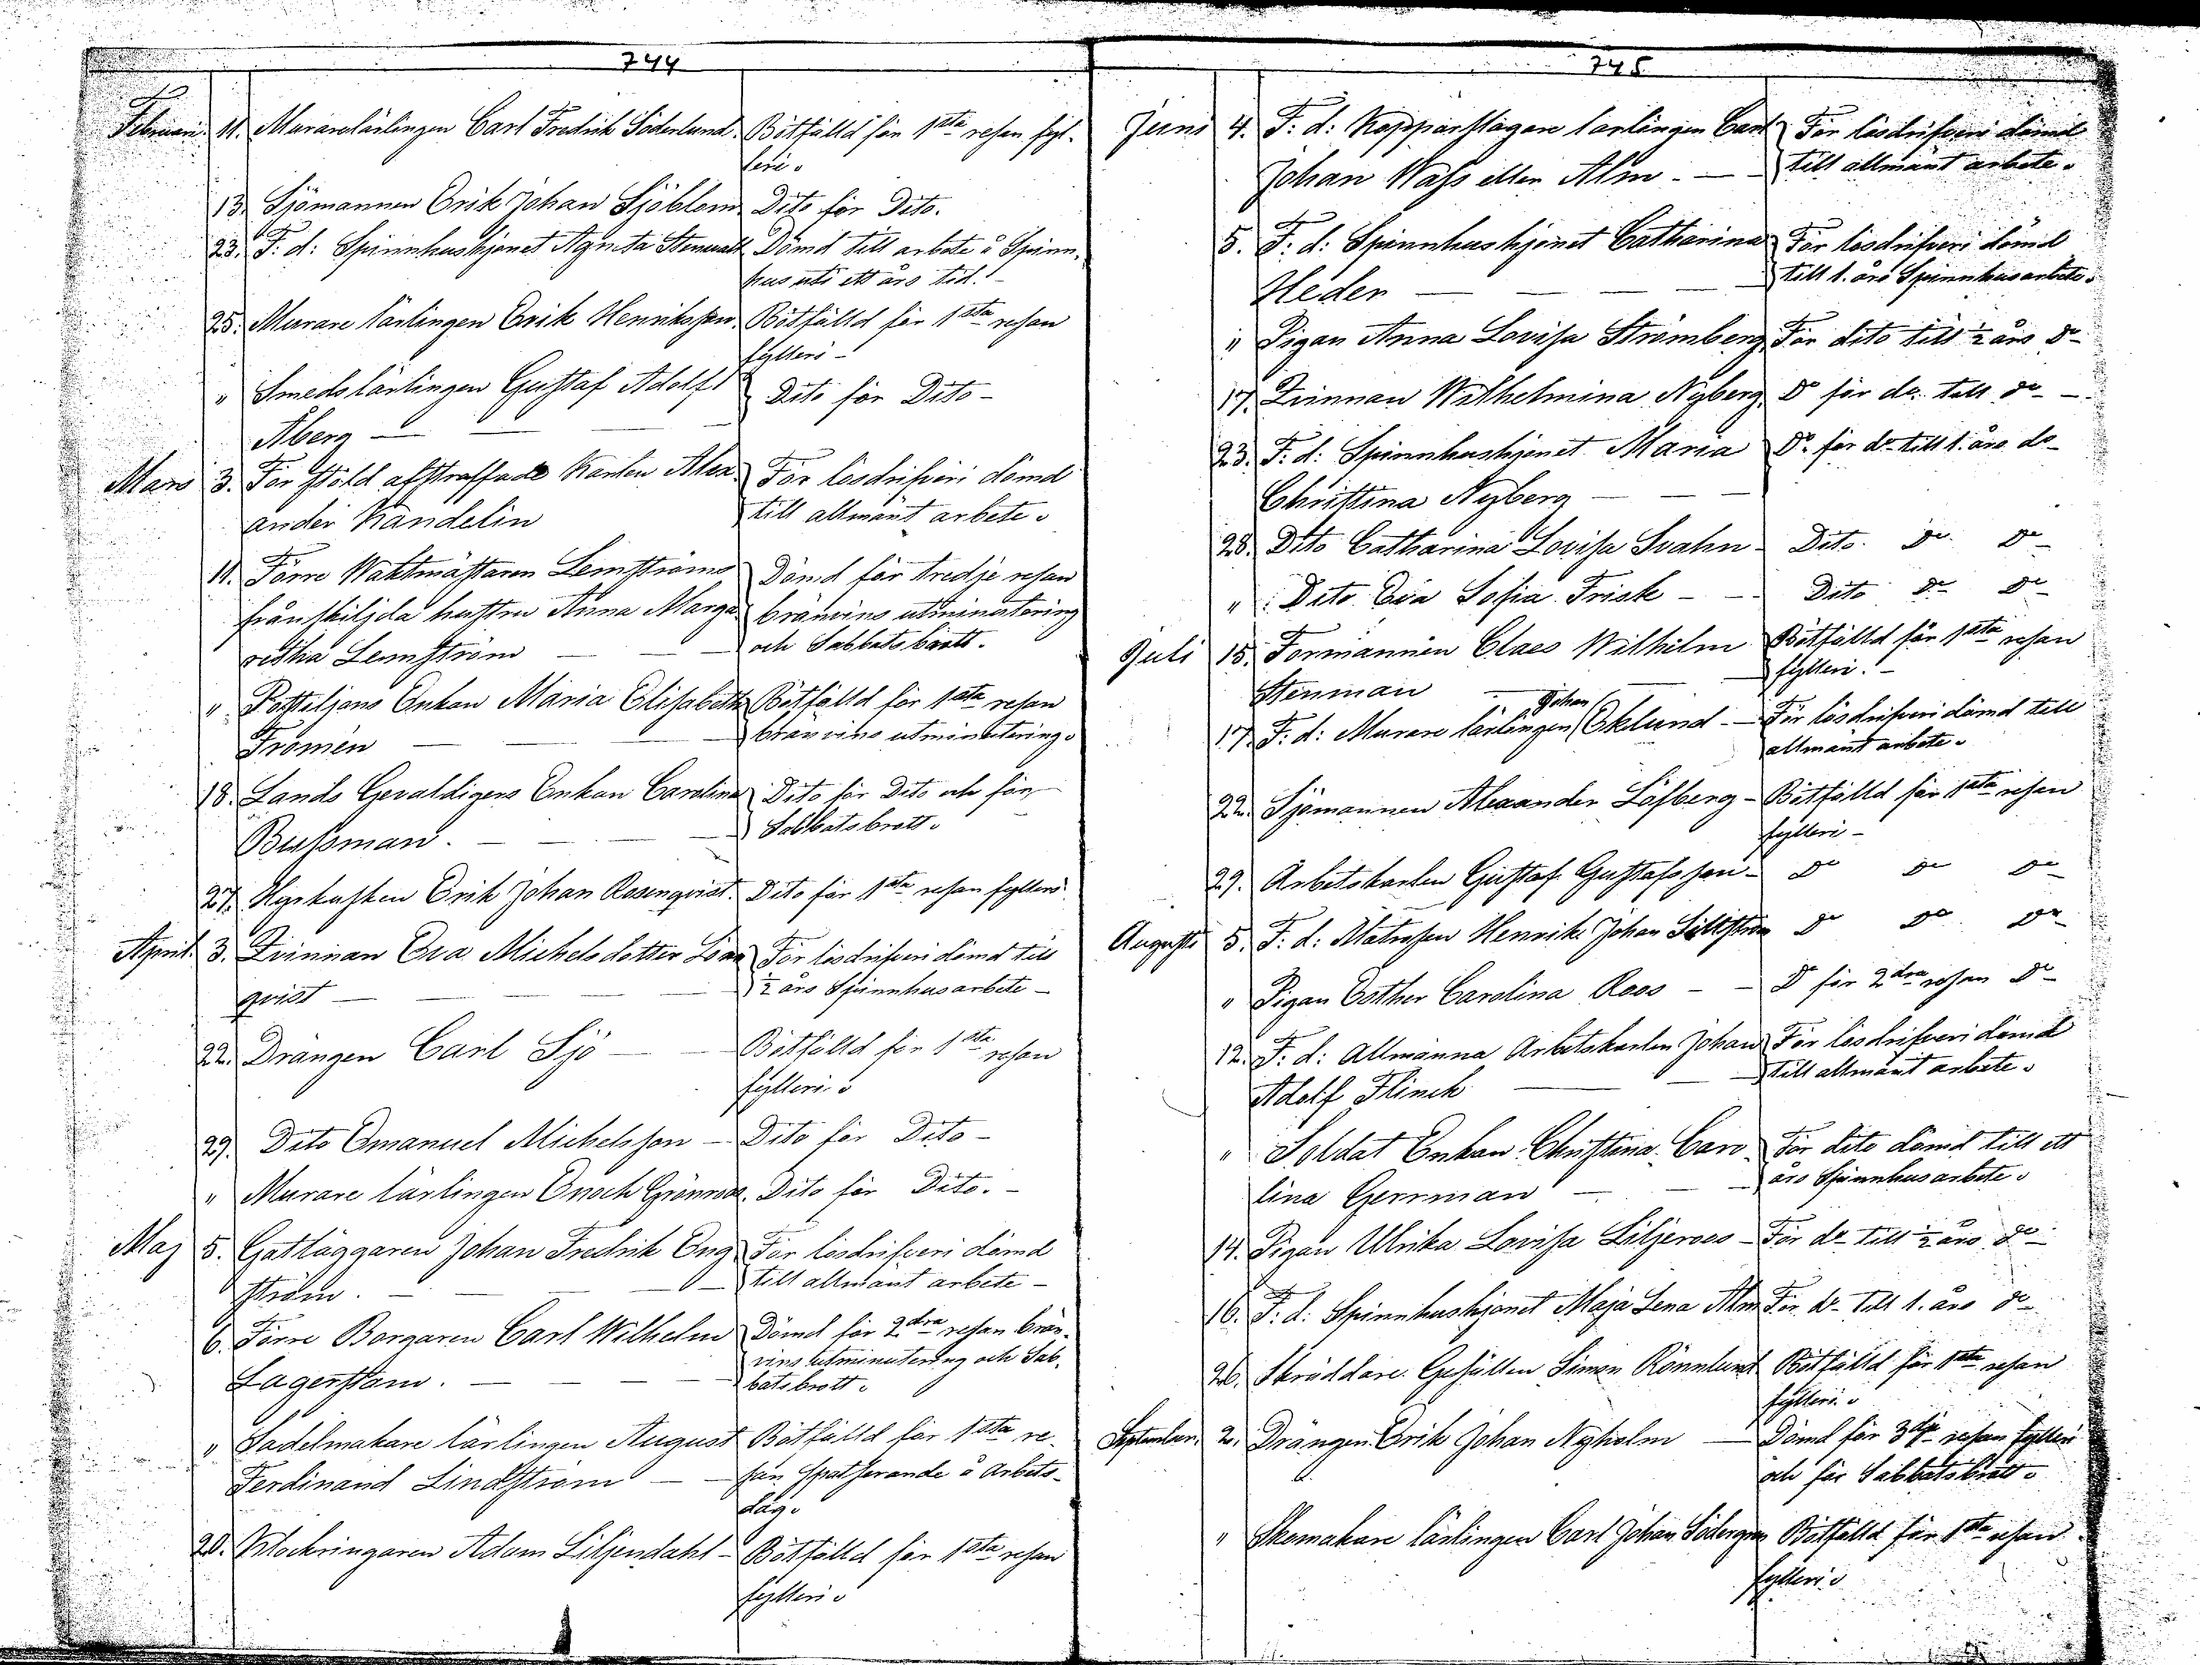 744
Februari 11. Murarelärlingen Carl Fredrik Söderlund. Bötfälld för 1sta resan fyl-
leri.
13. Sjömannen Erik Johan Sjöblom Dito för Dito.
23. F. d: Spinnhushjonet Agneta Stenvall Dömd till arbete å Spinn-
hus uti ett års tid.
25. Murare lärlingen Erik Henriksson. Bötfälld för 1sta resan
fylleri -
" Smedslärlingen Gustaf Adolf Dito för Dito -
Åberg —
Mars 3. För stöld afstraffade Karlen Alex- För lösdrifveri dömd
ander Kandelin till allmänt arbete.
11. Förre Waktmästaren Lemströms Dömd för tredje resan
frånskiljda hustru Anna Marga- bränvins utminutering
retha Lemström och Sabbatsbrott.
" Postiljons Enkan Maria Elisabeth Bötfälld för 1sta resan
Fromén bränvins utminutering.
18. Lands Gevaldigens Enkan Carolina Dito för Dito och för
Bussman. Sabbatsbrott.
27. Hyrkusken Erik Johan Rosenqvist. Dito för 1sta resan fylleri
April. 3. Qvinnan Eva Michelsdotter För lösdrifveri dömd till
qvist — ½ års Spinnhusarbete -
22. Drängen Carl Sjö — Bötfälld för 1sta resan
fylleri.
29. Dito Emanuel Michelsson — Dito för Dito -
" Murare lärlingen Enoch Grönroos. Dito för Dito. -
Maj 5. Gatläggaren Johan Fredrik Eng- För lösdrifveri dömd
ström. till allmänt arbete -
6. Förre Borgaren Carl Wilhelm Dömd för 2dra resan brän-
vins utminutering och Sab-
Lagerstam. batsbrott.
" Sadelmakare lärlingen August Bötfälld för 1sta re-
Ferdinand Lindström — san spatserande å Arbets-
dag.
20. Klockringaren Adam Liljendahl - Bötfälld för 1sta resan
fylleri.
745
Juni 4. F. d: Kopparslagare lärlingen Carl För lösdrifveri dömd
Johan Wass eller Alm. — till allmänt arbete.
5. F. d: Spinnhushjonet Catharina För lösdrifveri dömd
Heder — till 1. års Spinnhusarbete.
" Pigan Anna Lovisa Strömberg För dito till ½ års do
17. Qvinnan Wilhelmina Nyberg. Do för do. till do -
23. F. d: Spinnhushjonet Maria Do. för do till 1. års do
Christina Nyberg —
28. Dito Catharina Lovisa Svahn - Dito. do. do
" Dito Eva Sofia Frisk - Dito do do
Juli 15. Formannen Claes Wilhelm Bötfälld för 1sta resan
Stenman fylleri.
Johan
17. F. d: Murare lärlingen Eklund. — För lösdrifveri dömd till
allmänt arbete.
22. Sjömannen Alexander Löfberg - Bötfälld för 1sta resan
fylleri -
29. Arbetskarlen Gustaf Gustafsson - do do do
Augusti 5. F. d: Matrosen Henrik Johan do do do
" Pigan Esther Carolina Roos - Do för 2dra resan do
12. F. d: Allmänna Arbetskarlen Johan För lösdrifveri dömd
Adolf Flinck till allmänt arbete.
" Soldat Enkan Christina Caro- För dito dömd till ett
lina German — års Spinnhusarbete.
14. Pigan Ulrika Lovisa Liljeroos - För do till ½ års do
16. F. d: Spinnhushjonet Maja Lena Alm För do till 1. års do
26. Skräddare Gesällen Simon Rönnlund Bötfälld för 1sta resan
fylleri.
September. 2. Drängen Erik Johan Nyholm — Dömd för 3dje resan fylleri
och för Sabbatsbrott.
" Skomakare lärlingen Carl Johan Södergren Bötfälld för 1sta resan
fylleri.